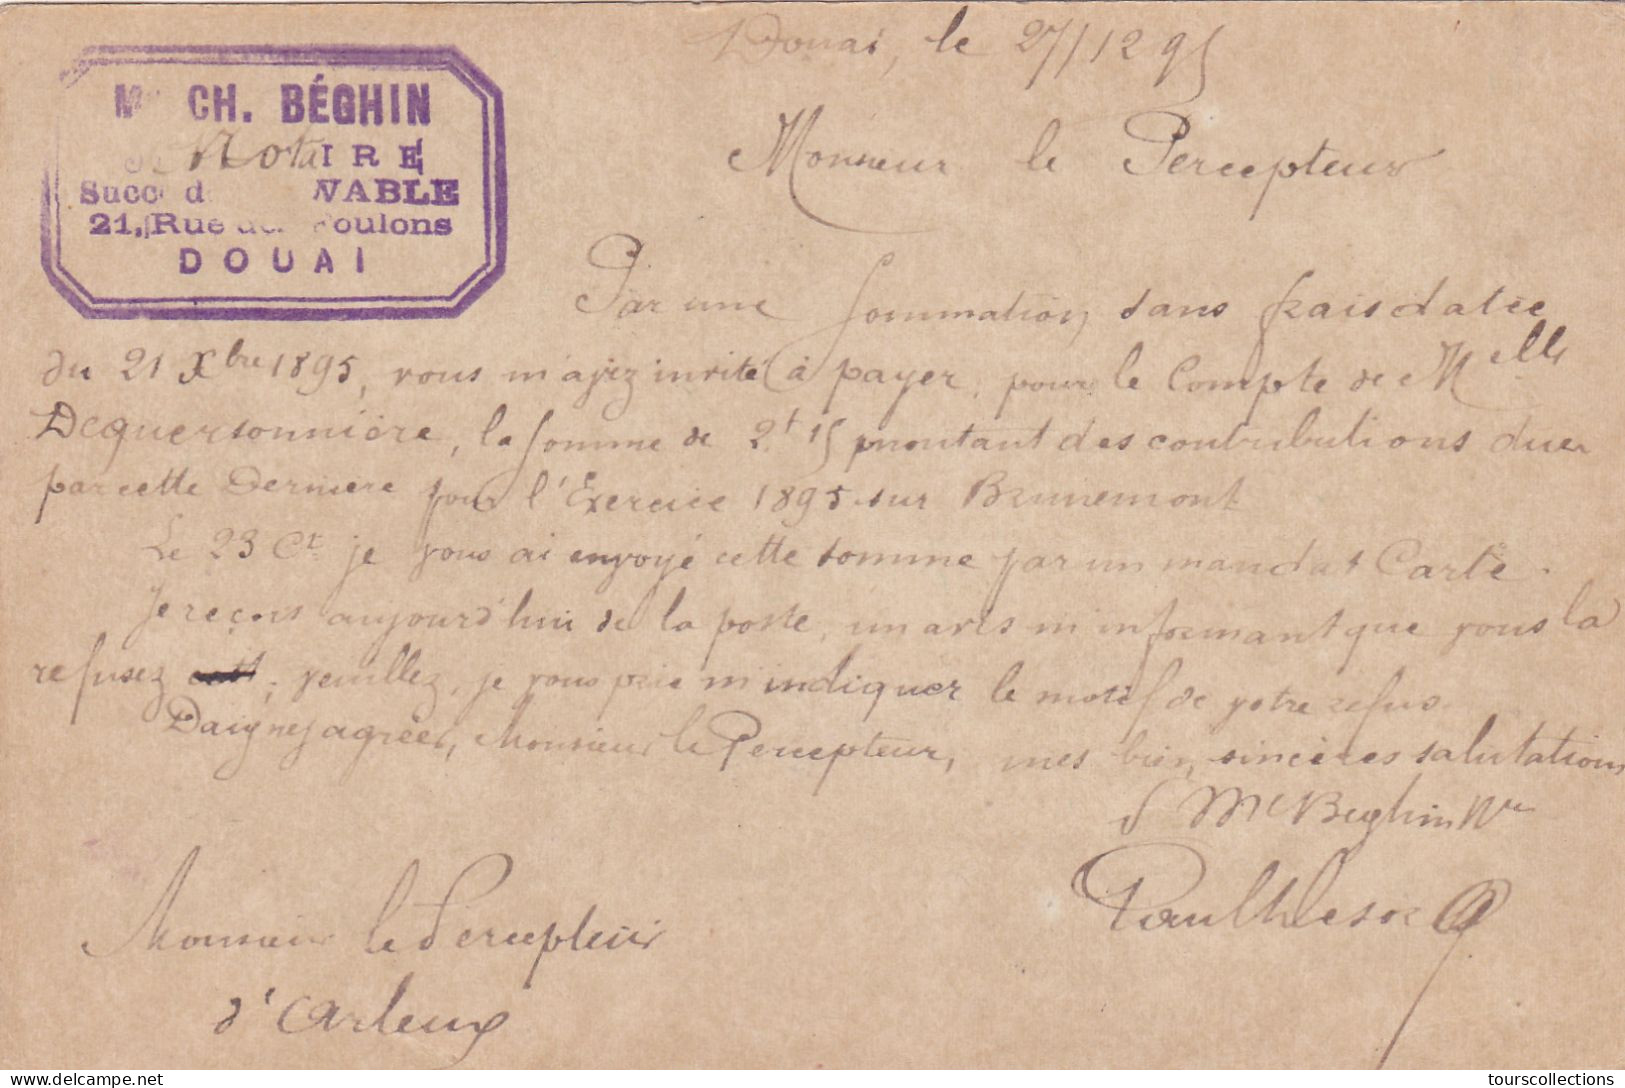 Douai, le 27/12 95
Mᵉ CH. BÉGHIN
NotaIRE
Succr de VABLE
21, Rue des Foulons
DOUAI
Monsieur le Percepteur
Par une sommation sans frais datée
du 21 Xbre 1895, vous m'avez invité à payer, pour le Compte de Melle
Dequersonnière, la somme de 2f 15 montant des contributions dues
par cette dernière pour l'Exercice 1895 sur Brunemont
Le 23 Ct je vous ai envoyé cette somme par un mandat Carte.
Je reçois aujourd'hui de la poste, un avis m'informant que vous la
refusez ; veuillez, je vous prie m'indiquer le motif de votre refus.
Daignez agréer, Monsieur le Percepteur, mes bien sincères salutations
Mᵉ Béghin Nre
Monsieur le Percepteur
d'Arleux
www.delcampe.net
tourscollections